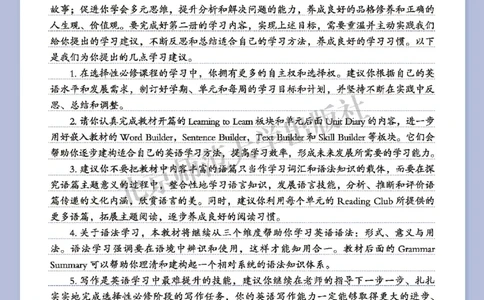 故事；促进你学会多元思维，提升分析和解决问题的能力，养成良好的品格修养和正确的
人生观、价值观。要完成好第二册的学习内容，实现上述目标，需要重温并主动实践我们
给你提出的学习建议，不断反思和总结适合自己的学习方法，养成良好的学习习惯。以下
是我们为你提出的几点学习建议。
1. 在选择性必修课程的学习中，你拥有更多的自主权和选择权。建议你根据自己的英
语水平和发展需求，制订好学期、单元和每周的学习目标和计划，并坚持不断在实践中反
思、总结和调整。
2. 请你认真完成教材开篇的 Learning to Learn 板块和单元后面 Unit Diary 的内容，进一步
用好嵌入教材的 Word Builder, Sentence Builder, Text Builder 和 Skill Builder 等板块。它们会
帮助你逐步建构适合自己的英语学习方法，提高学习效率，形成未来发展所需要的学习能力。
3. 建议你不要把教材中内容丰富的语篇只当作学习词汇和语法知识的载体，而要在探
究语篇主题意义的过程中，整合性地学习语言知识，发展语言技能，分析、推断和评价语
篇传递的文化内涵，欣赏语言的美。同时，建议你利用每个单元的 Reading Club 所提供的
更多语篇，拓展主题阅读，逐步养成良好的阅读习惯。
4. 关于语法学习，本教材将继续从三个维度帮助你学习英语语法：形式、意义与用
法。语法学习强调要在语境中辨识和使用，这样才能知用合一。教材后面的 Grammar
Summary 可以帮助你理清和建构起一个相对系统的语法知识体系。
5. 写作是英语学习中最难提升的技能，建议你继续在老师的指导下一步一步、扎扎
实实地完成选择性必修阶段的写作任务，你的英语写作能力一定能取得更大的进步。
北京师范大学出版社